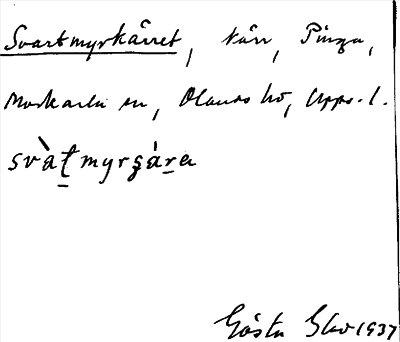 Svartmyrkärret, kärr, Pinga,
Morkarla sn, Olands hd, Upps. l.
svàṯmyrʂáṟa
Gösta Sbo 1937